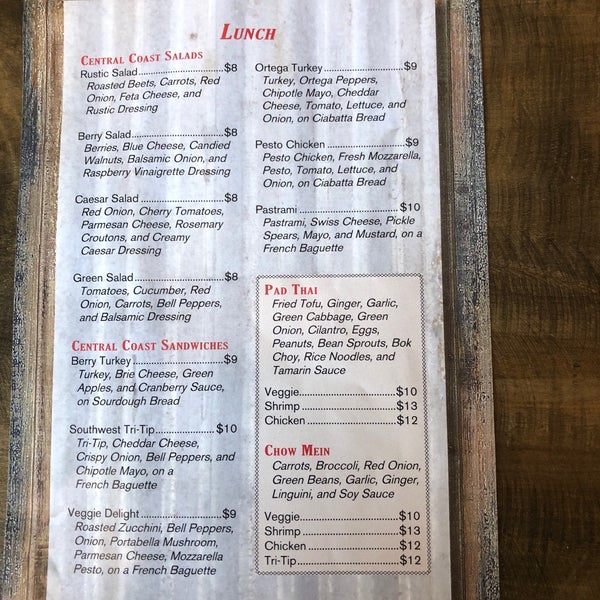 LUNCH
CENTRAL COAST SALADS
Rustic Salad....................$8
Roasted Beets, Carrots, Red
Onion, Feta Cheese, and
Rustic Dressing
Berry Salad....................$8
Berries, Blue Cheese, Candied
Walnuts, Balsamic Onion, and
Raspberry Vinaigrette Dressing
Caesar Salad....................$8
Red Onion, Cherry Tomatoes,
Parmesan Cheese, Rosemary
Croutons, and Creamy
Caesar Dressing
Green Salad....................$8
Tomatoes, Cucumber, Red
Onion, Carrots, Bell Peppers,
and Balsamic Dressing
CENTRAL COAST SANDWICHES
Berry Turkey....................$9
Turkey, Brie Cheese, Green
Apples, and Cranberry Sauce,
on Sourdough Bread
Southwest Tri-Tip....................$10
Tri-Tip, Cheddar Cheese,
Crispy Onion, Bell Peppers, and
Chipotle Mayo, on a
French Baguette
Veggie Delight....................$9
Roasted Zucchini, Bell Peppers,
Onion, Portabella Mushroom,
Parmesan Cheese, Mozzarella
Pesto, on a French Baguette
Ortega Turkey....................$9
Turkey, Ortega Peppers,
Chipotle Mayo, Cheddar
Cheese, Tomato, Lettuce, and
Onion, on Ciabatta Bread
Pesto Chicken....................$9
Pesto Chicken, Fresh Mozzarella,
Pesto, Tomato, Lettuce, and
Onion, on Ciabatta Bread
Pastrami....................$10
Pastrami, Swiss Cheese, Pickle
Spears, Mayo, and Mustard, on a
French Baguette
PAD THAI
Fried Tofu, Ginger, Garlic,
Green Cabbage, Green
Onion, Cilantro, Eggs,
Peanuts, Bean Sprouts, Bok
Choy, Rice Noodles, and
Tamarin Sauce
Veggie....................$10
Shrimp....................$13
Chicken....................$12
CHOW MEIN
Carrots, Broccoli, Red Onion,
Green Beans, Garlic, Ginger,
Linguini, and Soy Sauce
Veggie....................$10
Shrimp....................$13
Chicken....................$12
Tri-Tip....................$12